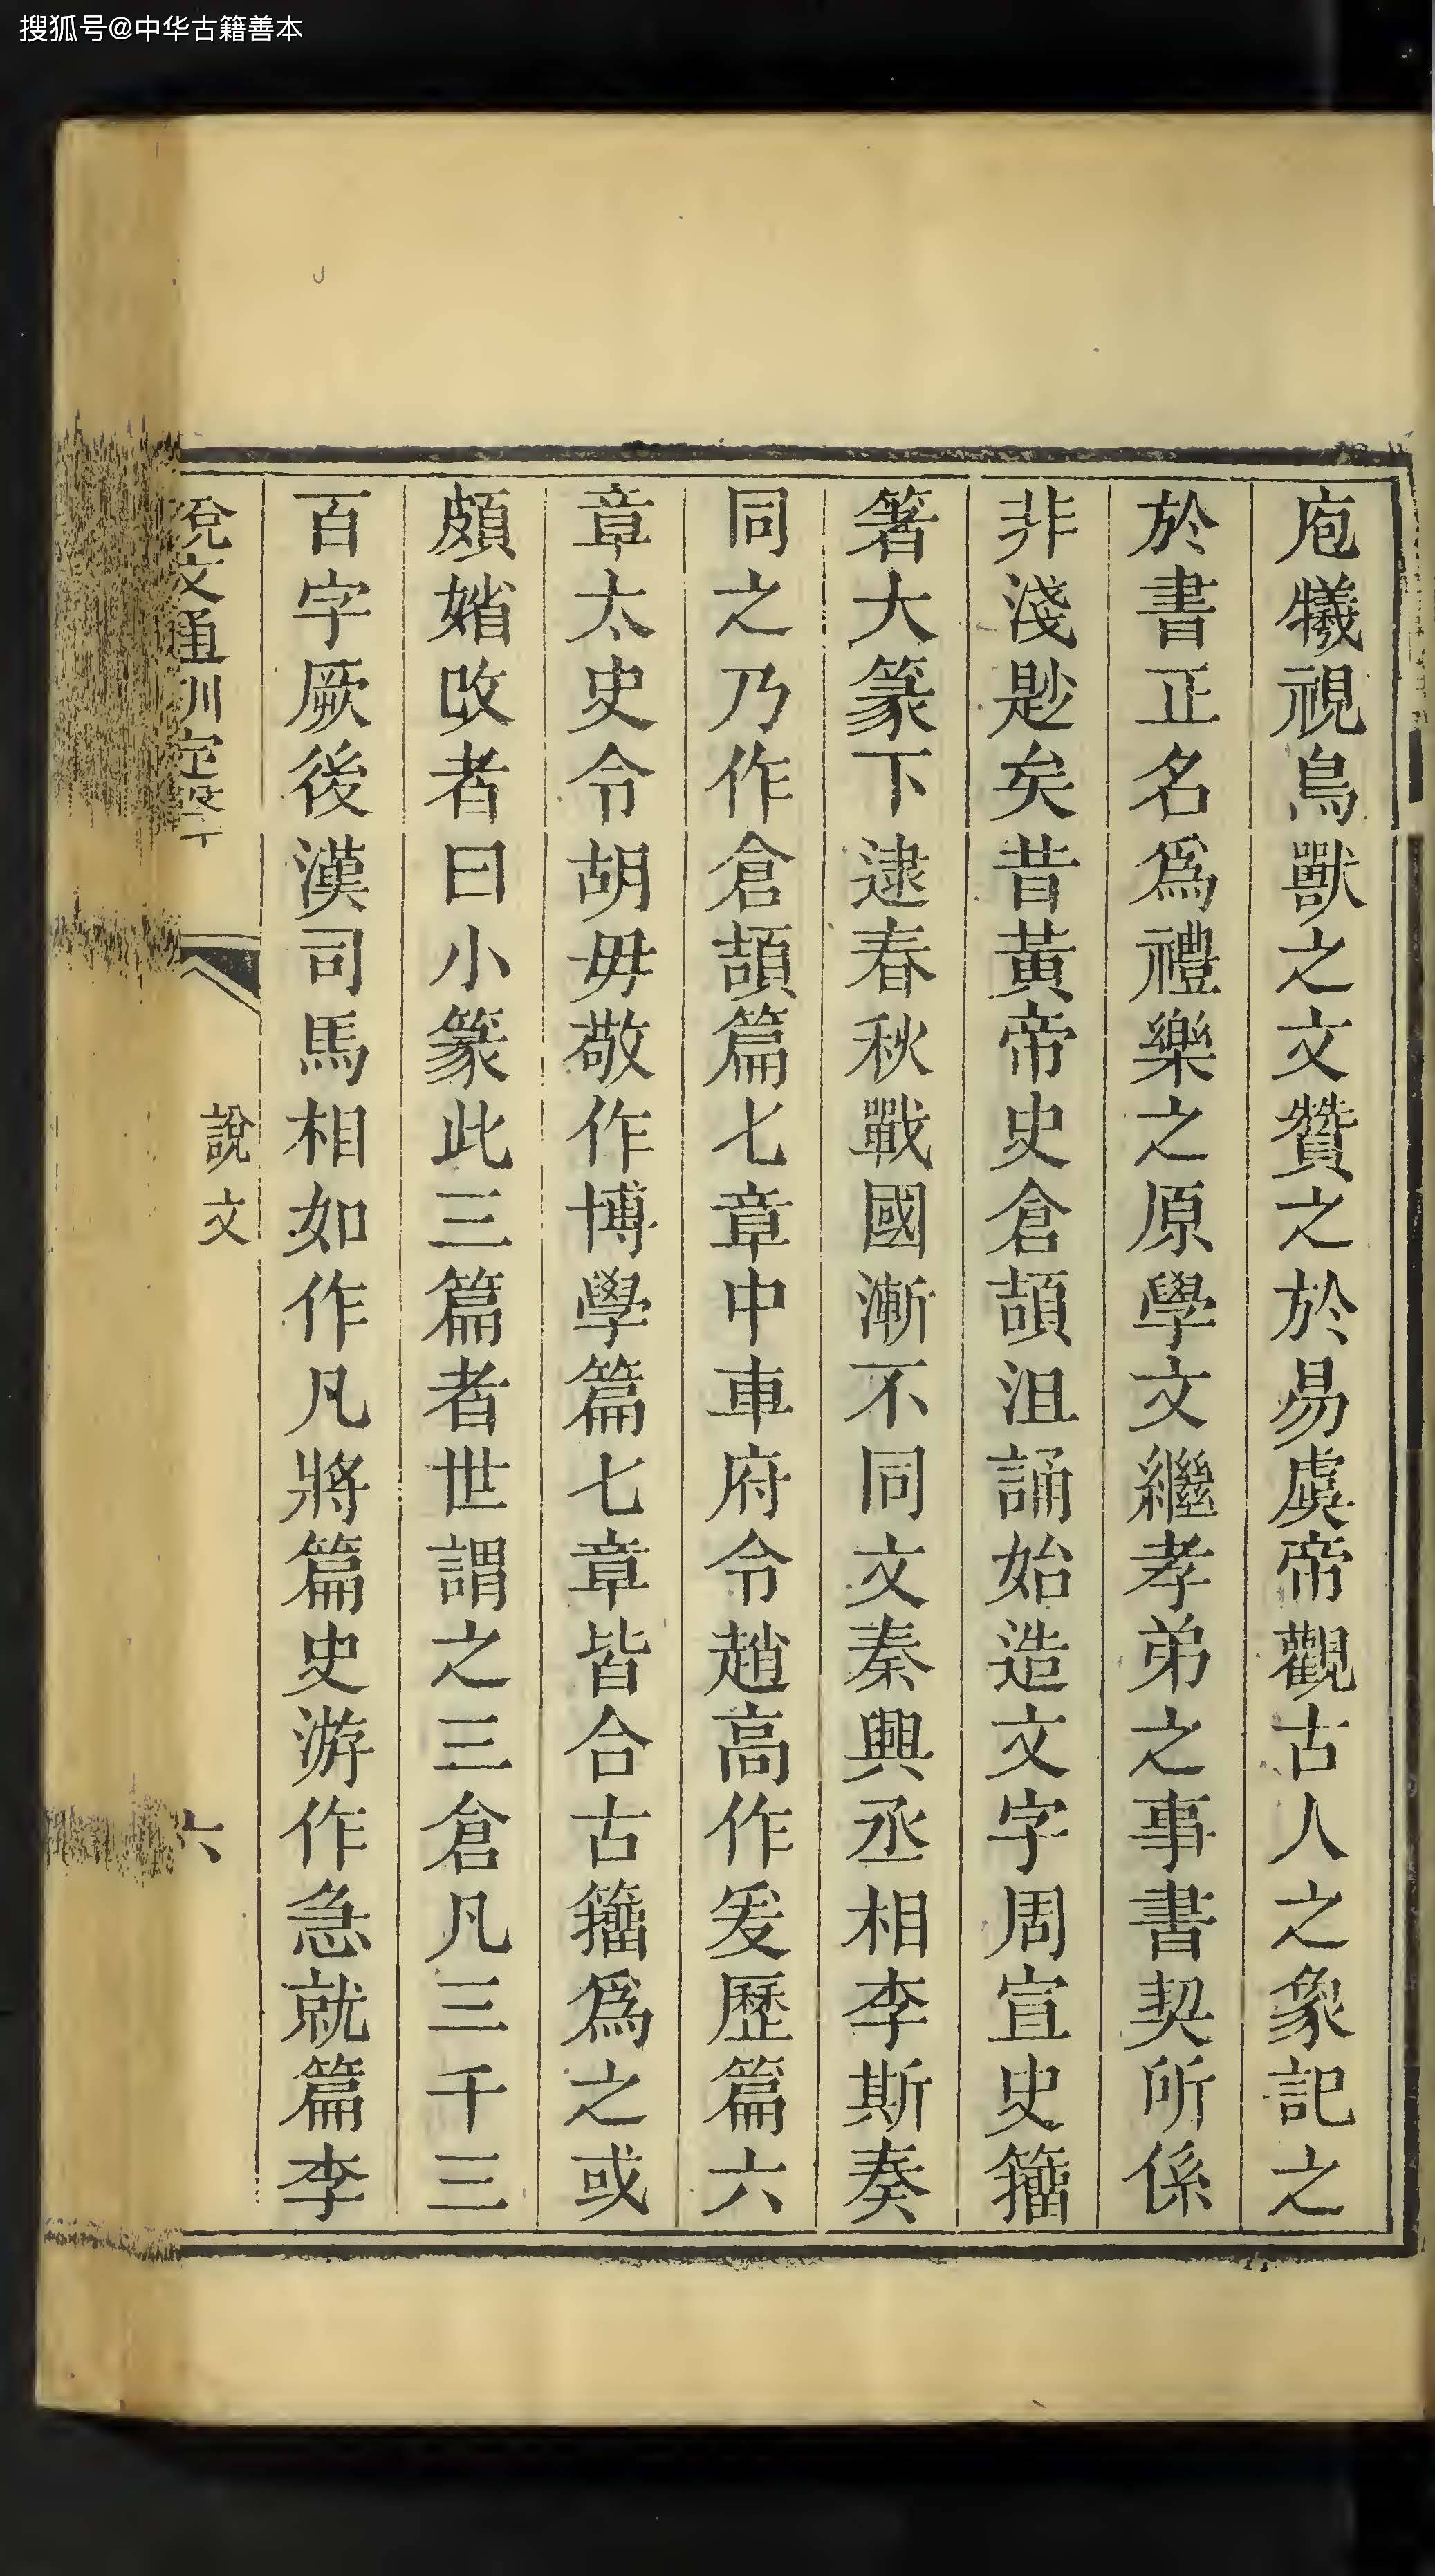 搜狐号@中华古籍善本
庖犧視鳥獸之文贊之於易虞帝觀古人之象記之
於書正名爲禮樂之原學文繼孝弟之事書契所係
非淺尟矣昔黃帝史倉頡沮誦始造文字周宣史籒
箸大篆下逮春秋戰國漸不同文秦興丞相李斯奏
同之乃作倉頡篇七章中車府令趙高作爰歷篇六
章太史令胡毋敬作博學篇七章皆合古籒爲之或
頗媘改者曰小篆此三篇者世謂之三倉凡三千三
百字厥後漢司馬相如作凡將篇史游作急就篇李
說文通訓定聲
說文
六